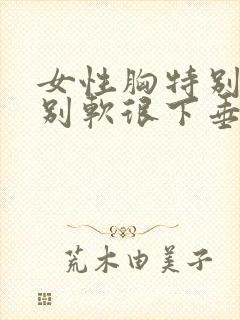 女性胸特别
别軟很下垂
荒木由美子